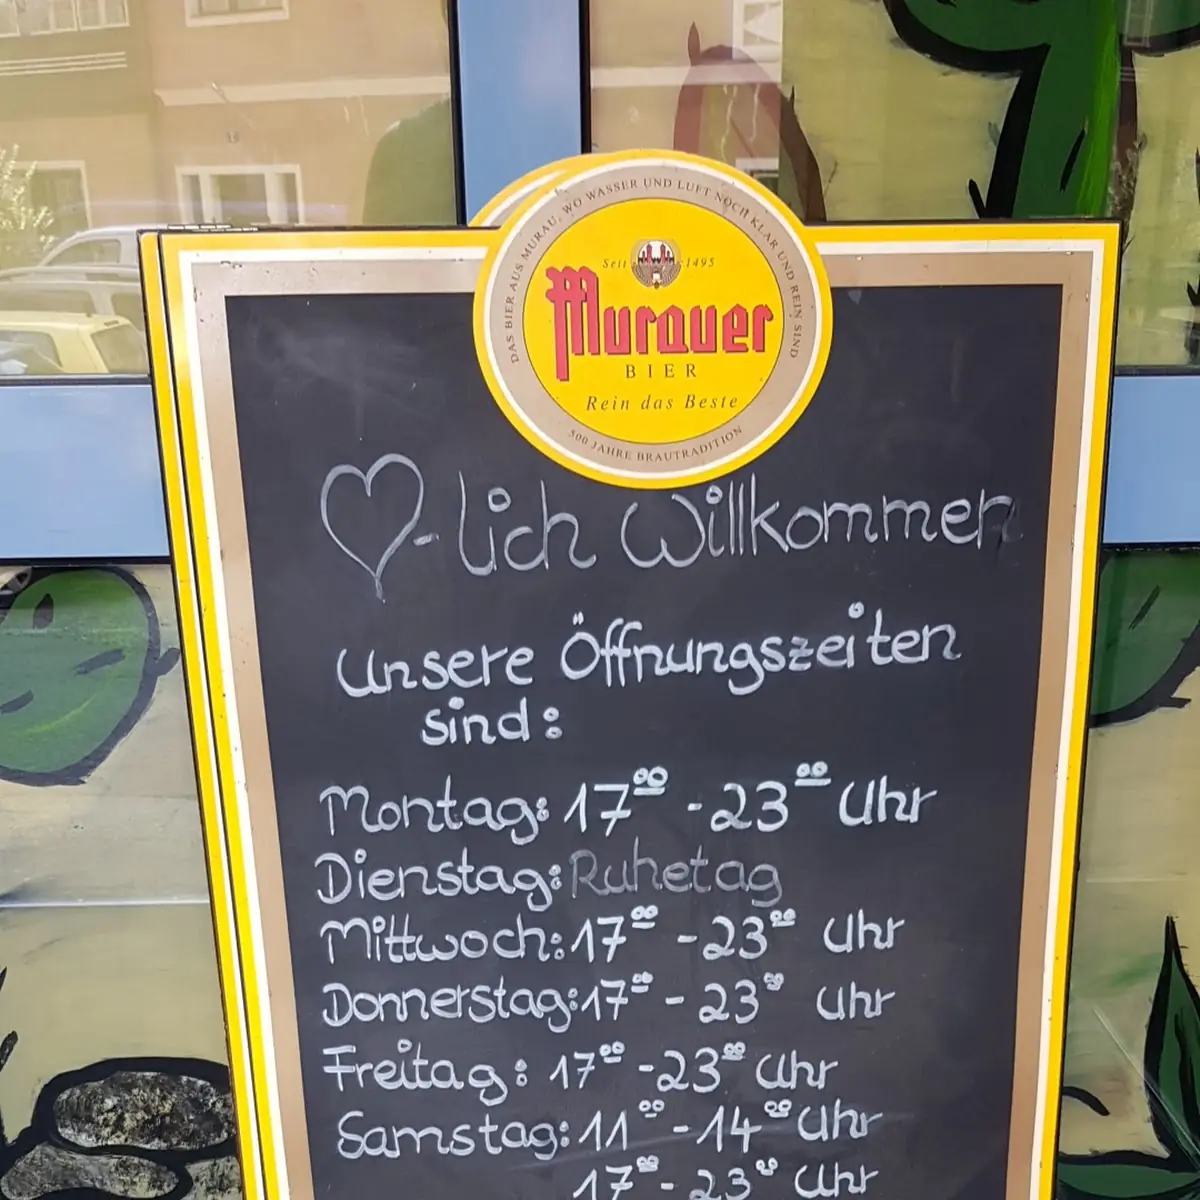 DAS BIER AUS MURAU, WO WASSER UND LUFT NOCH KLAR UND REIN SIND
Seit 1495
Murauer
BIER
Rein das Beste
500 JAHRE BRAUTRADITION
♡-lich Willkommen
Unsere Öffnungszeiten
sind:
Montag: 17⁰⁰ - 23⁰⁰ Uhr
Dienstag: Ruhetag
Mittwoch: 17⁰⁰ - 23⁰⁰ Uhr
Donnerstag: 17⁰⁰ - 23⁰⁰ Uhr
Freitag: 17⁰⁰ - 23⁰⁰ Uhr
Samstag: 11⁰⁰ - 14⁰⁰ Uhr
17⁰⁰ - 23⁰⁰ Uhr